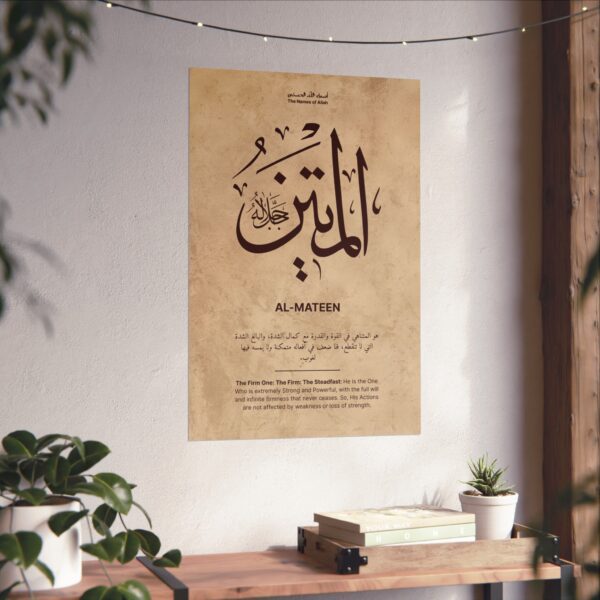 أسماء الله الحسنى
The Names of Allah
المتين
جل جلاله
AL-MATEEN
هو المتناهي في القوة والقدرة مع كمال الشدة، والبالغ الشدة
التي لا تنقطع، فلا ضعف في أفعاله متمكنة ولا يمسه فيها
لغوب.
The Firm One: The Firm: The Steadfast: He is the One
Who is extremely Strong and Powerful, with the full will
and infinite firmness that never ceases. So, His Actions
are not affected by weakness or loss of strength.
HOME